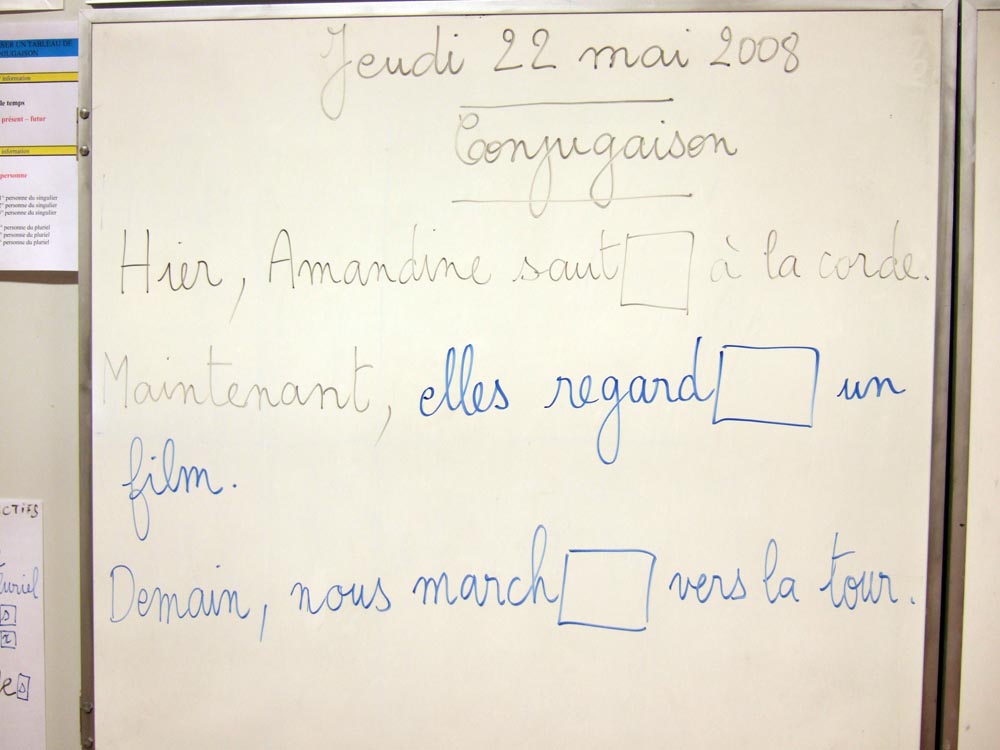 SER UN TABLEAU DE
NJUGAISON
information
le temps
présent – futur
information
personne
1° personne du singulier
2° personne du singulier
3° personne du singulier
personne du pluriel
personne du pluriel
personne du pluriel
Jeudi 22 mai 2008
Conjugaison
Hier, Amandine saut à la corde.
Maintenant, elles regard un
film.
Demain, nous march vers la tour.
CTIFS
luriel
s
x
s